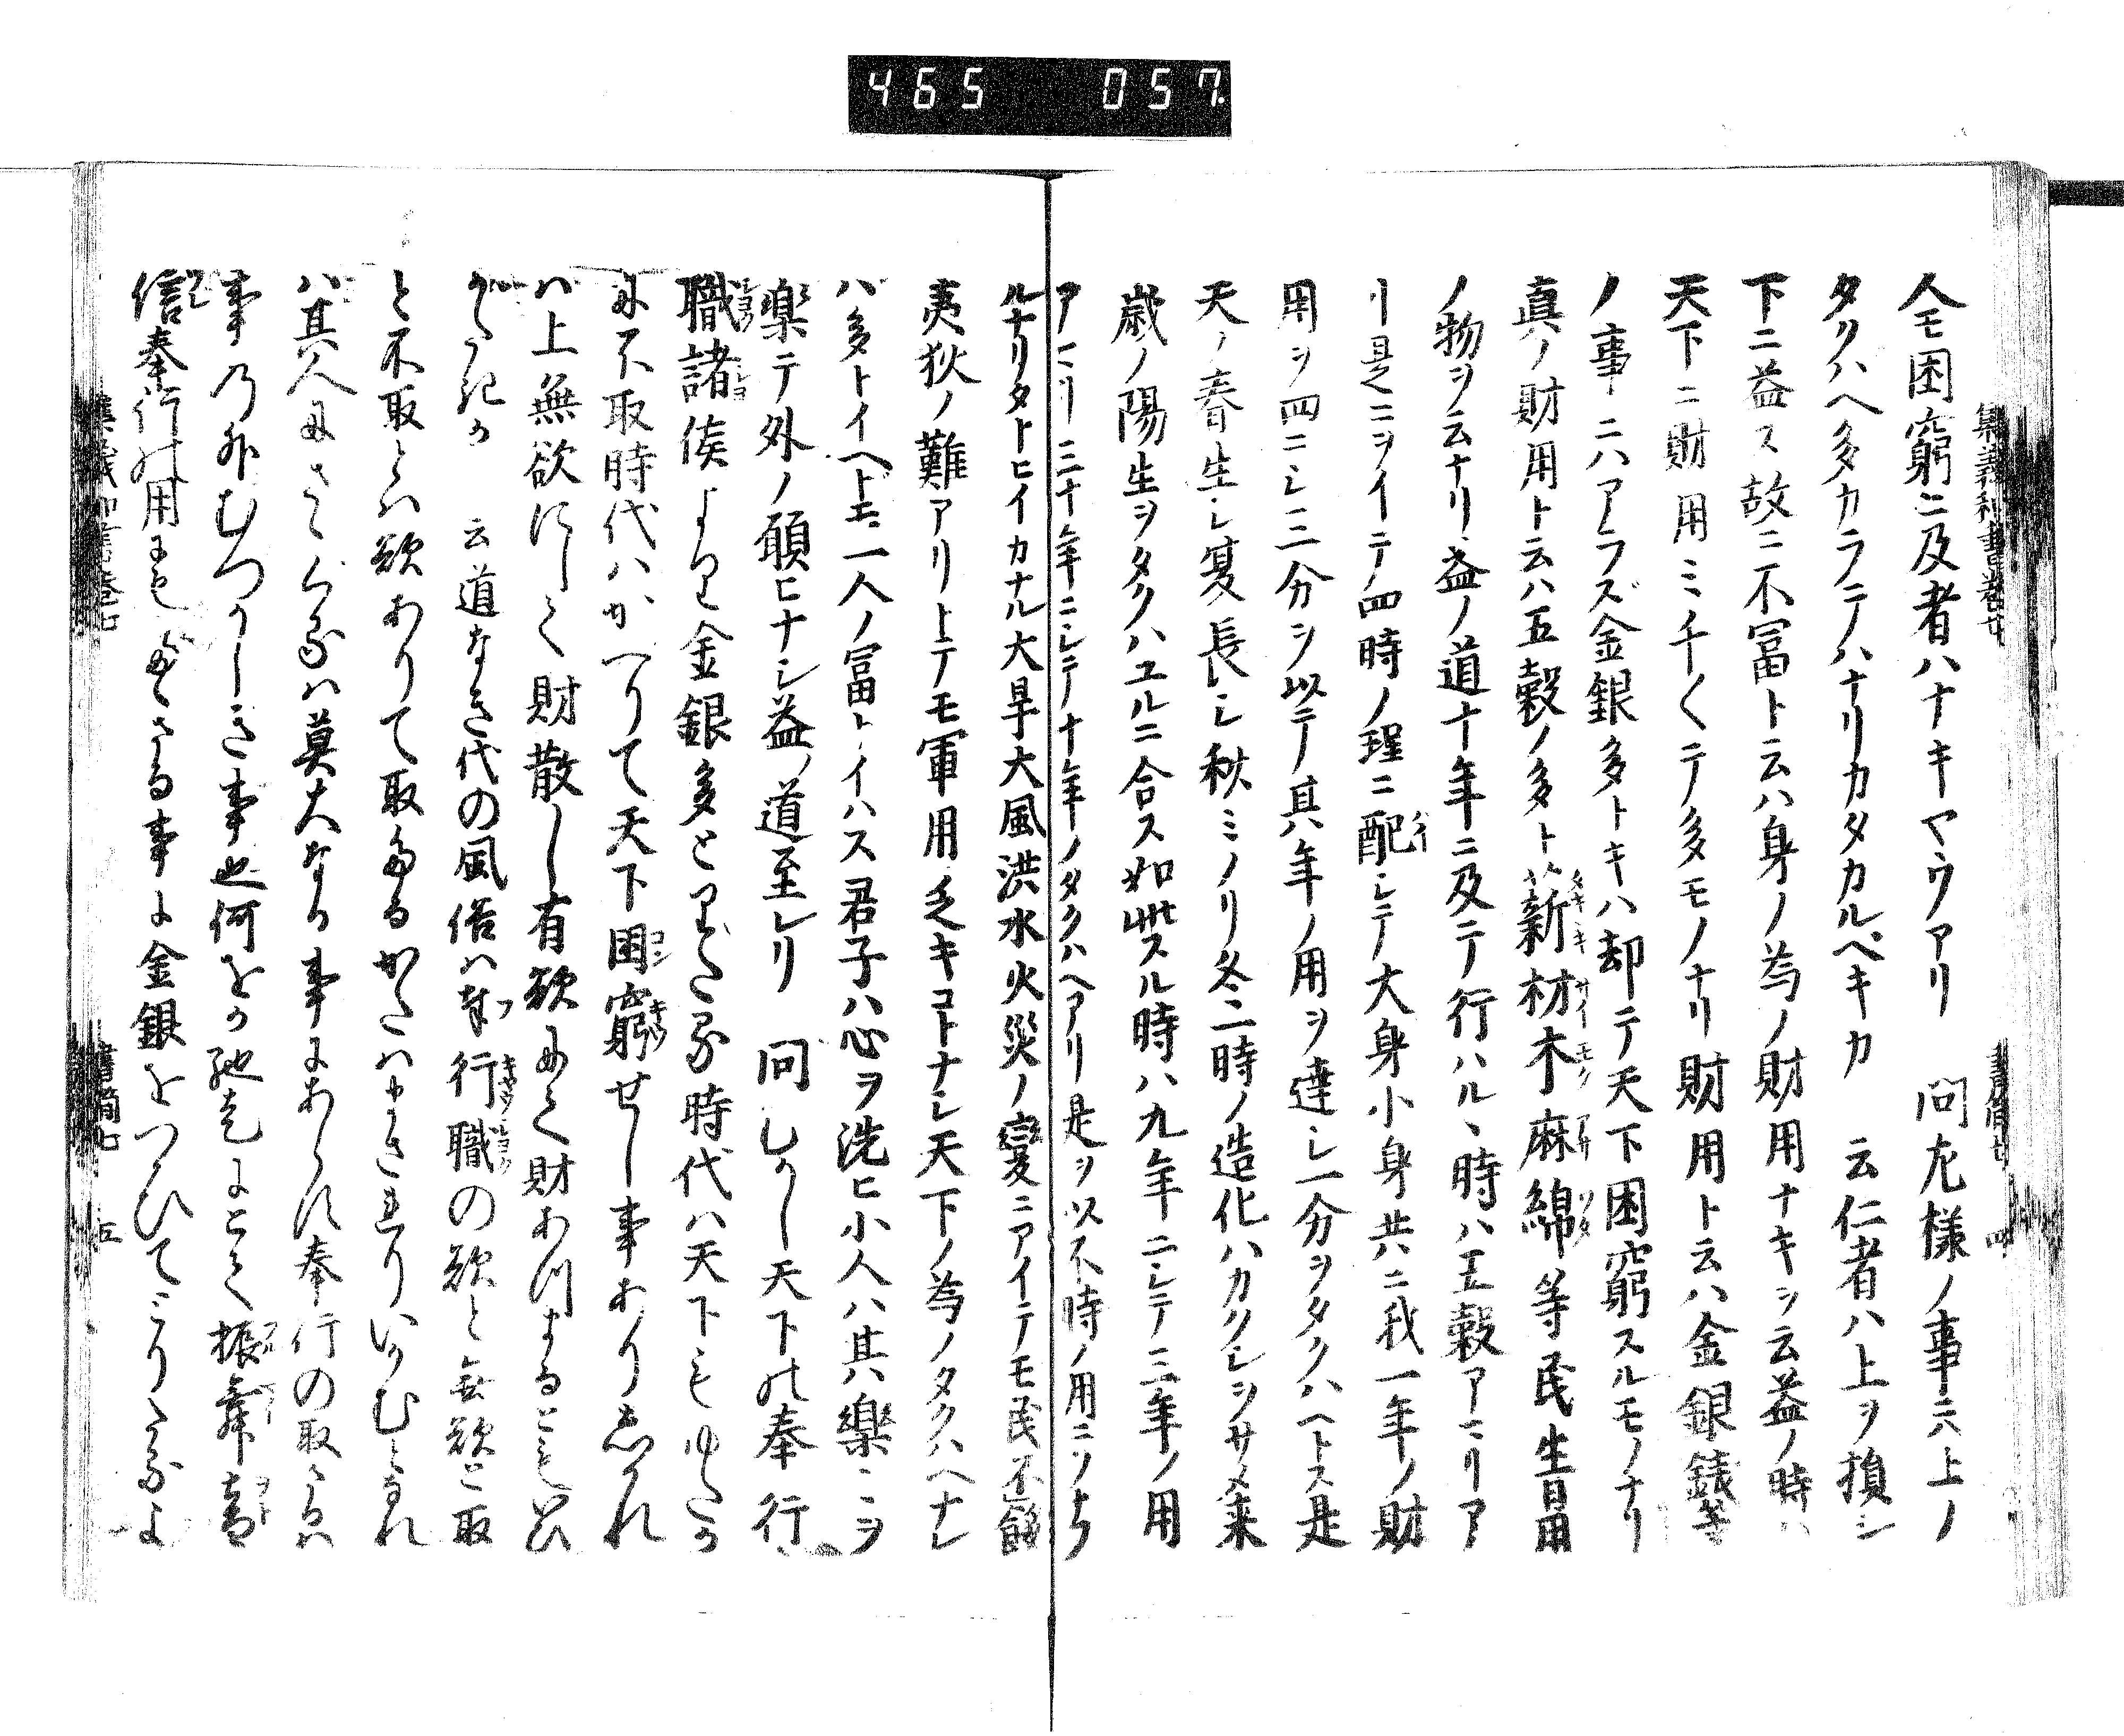 465 057
集義和書巷廿 書簡廿 四
仝モ困窮ニ及者ハナキヤウアリ 問尤様ノ事ニハ上ノ
タクハヘ多カラテハナリカタカルベキカ 云仁者ハ上ヲ損シ
下ニ益ス故ニ不冨ト云ハ身ノ為ノ財用ナキヲ云益ノ時ハ
天下ニ財用ミチ〱テ多モノナリ財用ト云ハ金銀錢
ノ事ニハアラズ金銀多トキハ却テ天下困窮スルモノナリ
真ノ財用ト云ハ五穀ノ多ト薪材木麻綿等民生日用
ノ物ヲ云ナリ益ノ道十年ニ及テ行ハル丶時ハ五穀アマリア
リ是ニヲイテ四時ノ理ニ配シテ大身小身共ニ我一年ノ財
用ヲ四ニシ三分ヲ以テ其年ノ用ヲ達シ一分ヲタクハヘトス是
天ノ春生シ夏長シ秋ミノリ冬一時ノ造化ハカクレヲサメ来
歳ノ陽生ヲタクハユルニ合ス如此スル時ハ九年ニシテ三年ノ用
アマリ三十年ニシテ十年ノタクハヘアリ是ヲ以不時ノ用ニソナフ
ルナリタトヒイカナル大旱大風洪水火災ノ變ニアイテモ民不餓
夷狄ノ難アリトテモ軍用乏キコトナシ天下ノ為ノタクハヘナレ
ハ多トイヘトモ一人ノ冨トイハス君子ハ心ヲ洗ヒ小人ハ其樂ミヲ
樂テ外ノ願ヒナシ益ノ道至レリ 問むかし天下の奉行
職諸侯より金銀多とりたる時代ハ天下もゆたか
に不取時代ハかへりて天下困窮せし事ありしかれ
ハ上無欲にして財散し有欲にて財あつまるともいひ
かたきか 云道なき代の風俗ハ奉行職の欲と無欲と取
と不取とハ欲ありて取あるかたハよきまりいかむとなれ
ハ其人にをくる分ハ莫大なる事にあらす奉行の取るハ
事の外むつかしき事也何をか馳走にとて振舞音
信奉行の用にもたゝさる事に金銀をついひてとりたるよ
集義和書巻七 書簡七 五